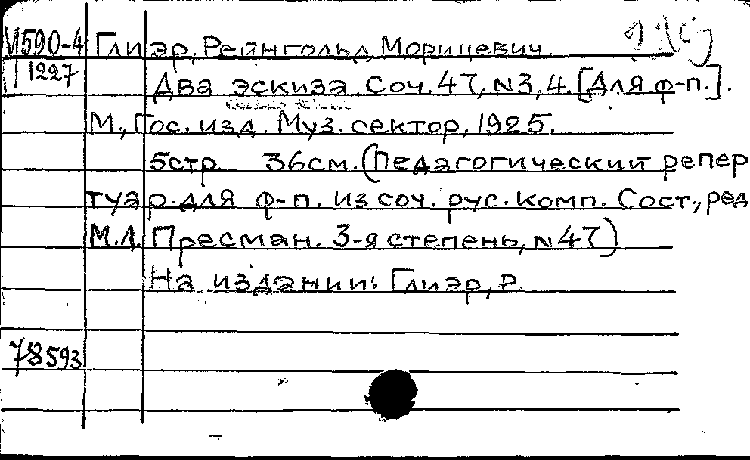 М590-4 Глиэр, Рейнгольд Морицевич.
1227 Два эскиза. Соч. 47, N3,4. [Для ф-п.].
М., Гос. изд. Муз. сектор, 1925.
5стр. 36см. (Педагогический репер
туар для ф-п. из соч. рус. комп. Сост., ред
М.Л. Пресман. 3-я степень, N47)
На издании: Глиэр, Р.
78593